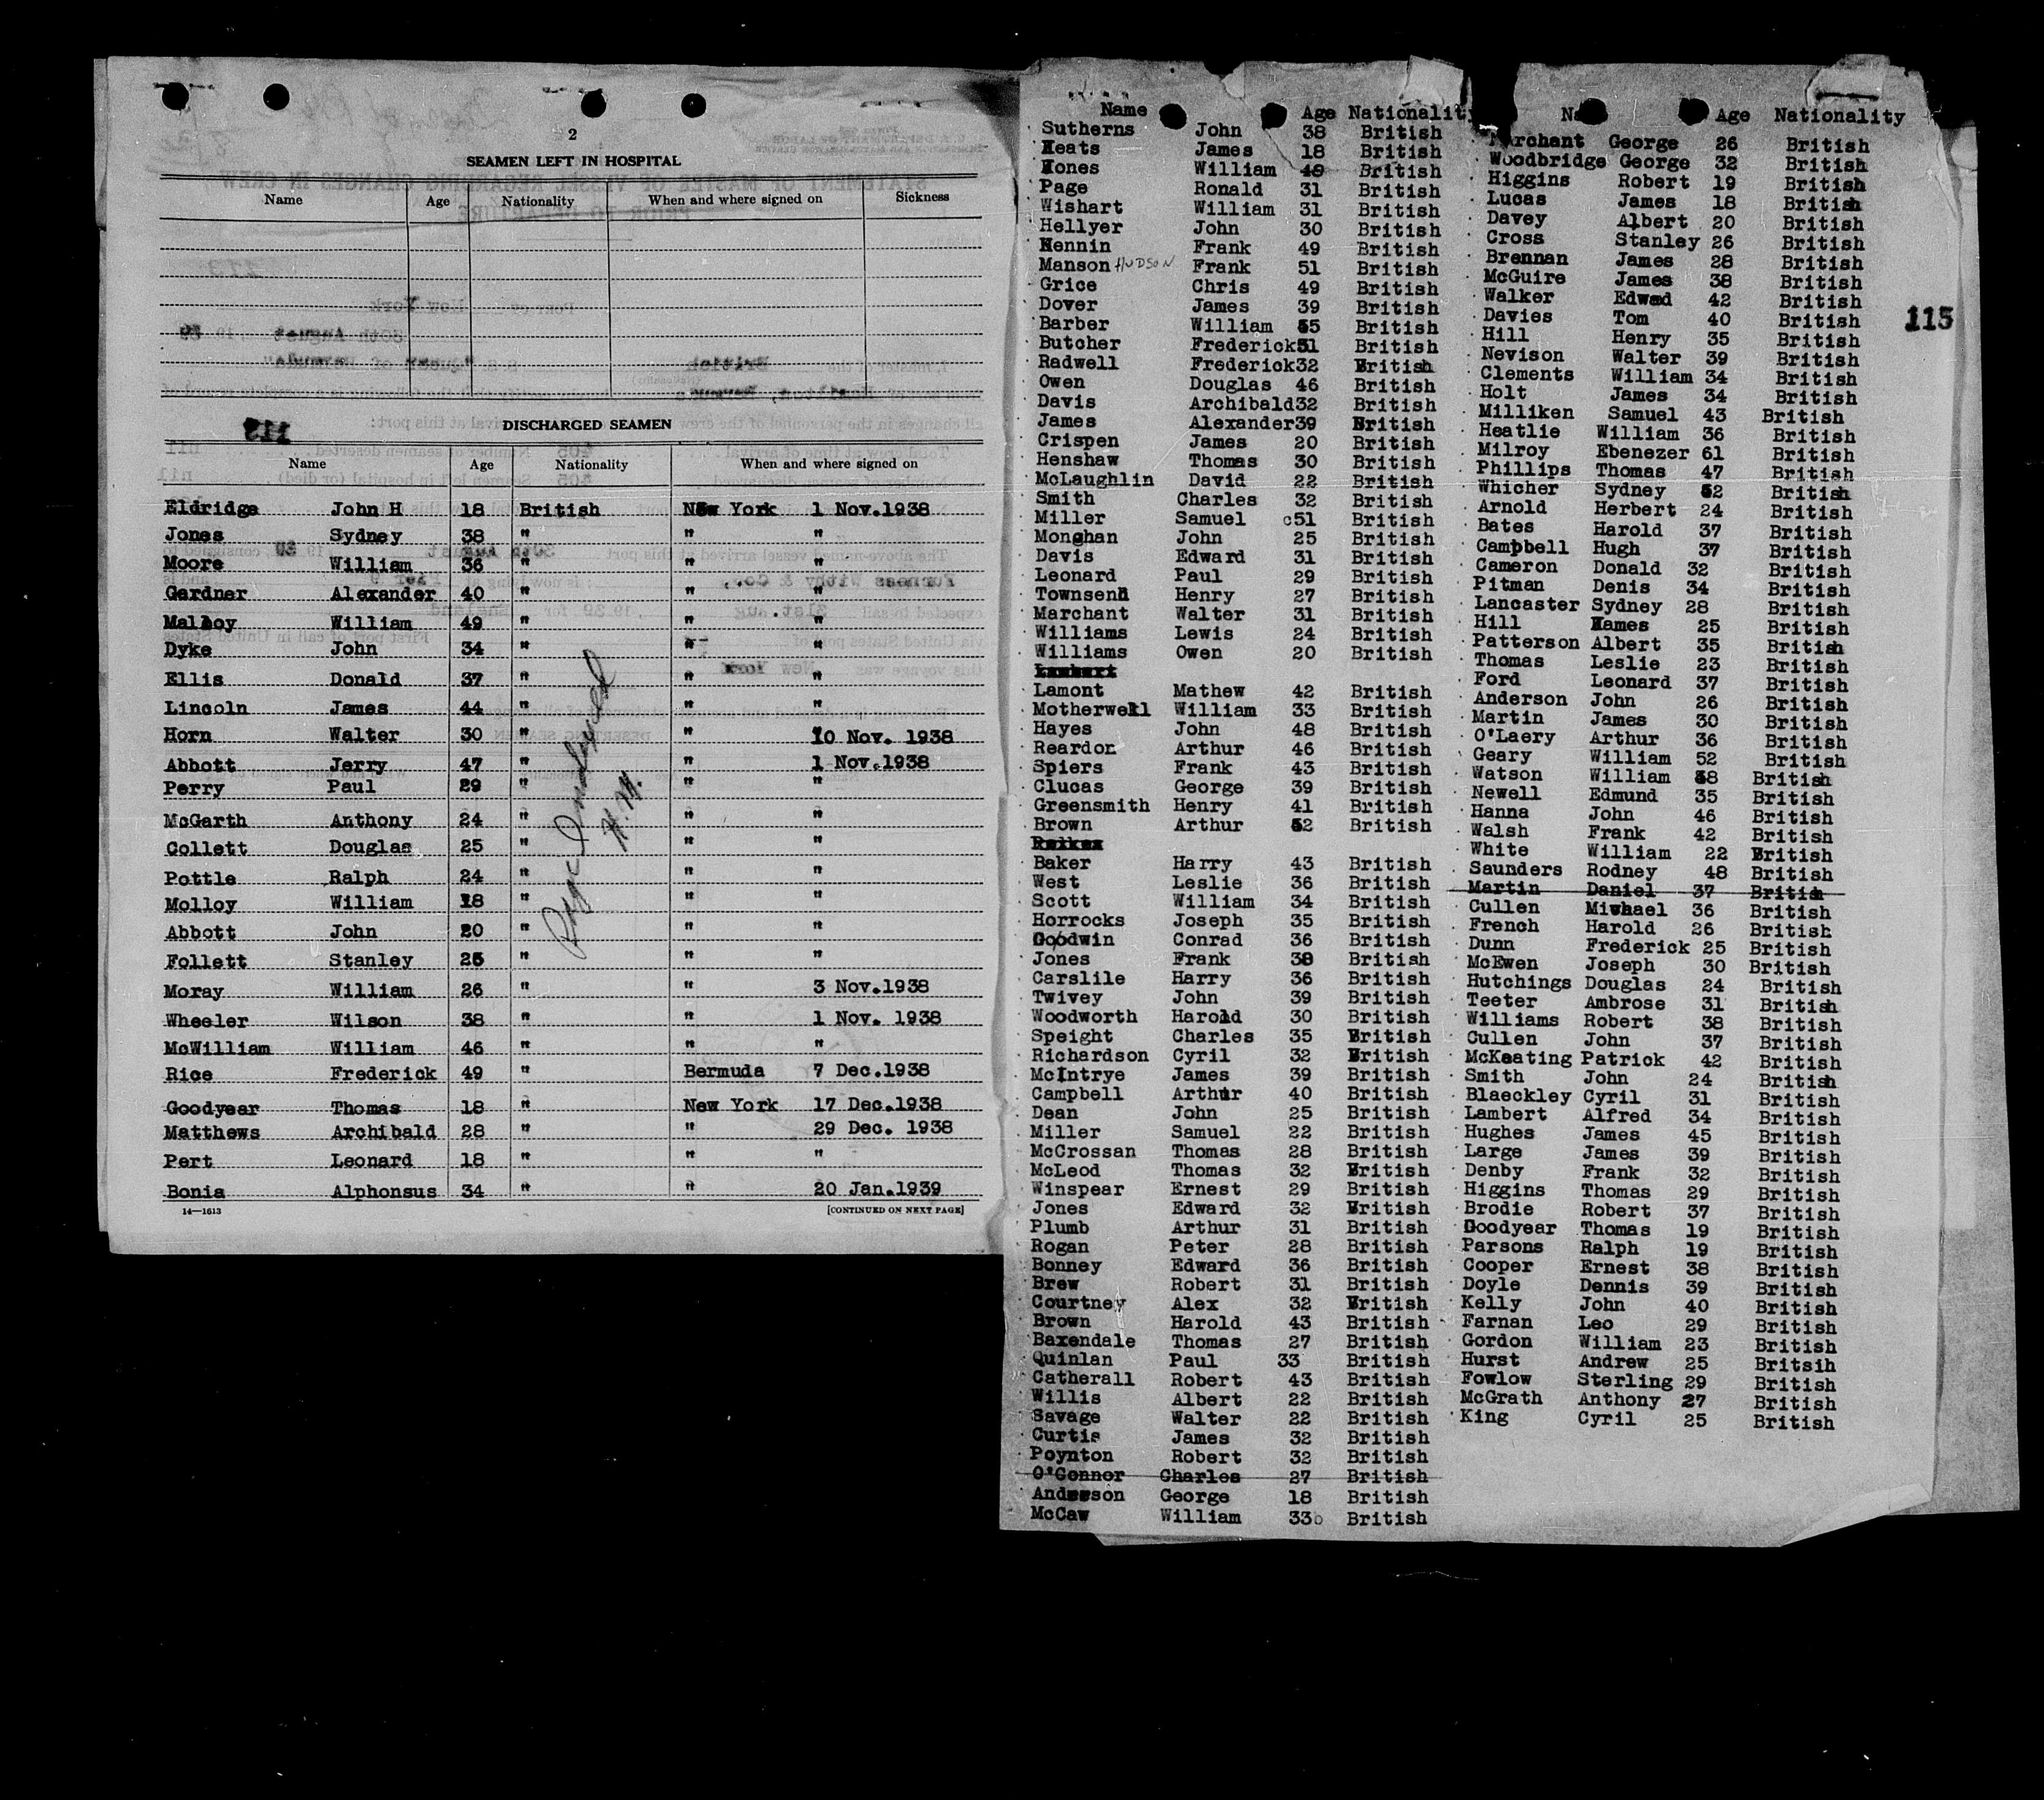 2
SEAMEN LEFT IN HOSPITAL
Name Age Nationality When and where signed on Sickness
DISCHARGED SEAMEN
113
Name Age Nationality When and where signed on
Eldridge John H 18 British New York 1 Nov.1938
Jones Sydney 38 " " "
Moore William 36 " " "
Gardner Alexander 40 " " "
Malloy William 49 " " "
Dyke John 34 " " "
Ellis Donald 37 " " "
Lincoln James 44 " " "
Horn Walter 30 " " 10 Nov. 1938
Abbott Jerry 47 " " 1 Nov.1938
Perry Paul 29 " " "
McGarth Anthony 24 " " "
Collett Douglas 25 " " "
Pottle Ralph 24 " " "
Molloy William 18 " " "
Abbott John 20 " " "
Follett Stanley 25 " " "
Moray William 26 " " 3 Nov.1938
Wheeler Wilson 38 " " 1 Nov. 1938
McWilliam William 46 " " "
Rice Frederick 49 " Bermuda 7 Dec.1938
Goodyear Thomas 18 " New York 17 Dec.1938
Matthews Archibald 28 " " 29 Dec. 1938
Pert Leonard 18 " " "
Bonia Alphonsus 34 " " 20 Jan.1939
14—1613 [CONTINUED ON NEXT PAGE]
H.M.
Name Age Nationality
Sutherns John 38 British
Keats James 18 British
Hones William 48 British
Page Ronald 31 British
Wishart William 31 British
Hellyer John 30 British
Hennin Frank 49 British
Manson HUDSON Frank 51 British
Grice Chris 49 British
Dover James 39 British
Barber William 55 British
Butcher Frederick 51 British
Radwell Frederick32 British
Owen Douglas 46 British
Davis Archibald32 British
James Alexander39 British
Crispen James 20 British
Henshaw Thomas 30 British
McLaughlin David 22 British
Smith Charles 32 British
Miller Samuel 51 British
Monghan John 25 British
Davis Edward 31 British
Leonard Paul 29 British
Townsend Henry 27 British
Marchant Walter 31 British
Williams Lewis 24 British
Williams Owen 20 British
Lamont Mathew 42 British
Motherwell William 33 British
Hayes John 48 British
Reardon Arthur 46 British
Spiers Frank 43 British
Clucas George 39 British
Greensmith Henry 41 British
Brown Arthur 52 British
Baker Harry 43 British
West Leslie 36 British
Scott William 34 British
Horrocks Joseph 35 British
Goodwin Conrad 36 British
Jones Frank 38 British
Carslile Harry 36 British
Twivey John 39 British
Woodworth Harold 30 British
Speight Charles 35 British
Richardson Cyril 32 British
McIntrye James 39 British
Campbell Arthur 40 British
Dean John 25 British
Miller Samuel 22 British
McCrossan Thomas 28 British
McLeod Thomas 32 British
Winspear Ernest 29 British
Jones Edward 32 British
Plumb Arthur 31 British
Rogan Peter 28 British
Bonney Edward 36 British
Brew Robert 31 British
Courtney Alex 32 British
Brown Harold 43 British
Baxendale Thomas 27 British
Quinlan Paul 33 British
Catherall Robert 43 British
Willis Albert 22 British
Savage Walter 22 British
Curtis James 32 British
Poynton Robert 32 British
O'Connor Charles 27 British
Anderson George 18 British
McCaw William 33 British
Age Nationality
Marchant George 26 British
Woodbridge George 32 British
Higgins Robert 19 British
Lucas James 18 British
Davey Albert 20 British
Cross Stanley 26 British
Brennan James 28 British
McGuire James 38 British
Walker Edwad 42 British
Davies Tom 40 British
115
Hill Henry 35 British
Nevison Walter 39 British
Clements William 34 British
Holt James 34 British
Milliken Samuel 43 British
Heatlie William 36 British
Milroy Ebenezer 61 British
Phillips Thomas 47 British
Whicher Sydney 52 British
Arnold Herbert 24 British
Bates Harold 37 British
Campbell Hugh 37 British
Cameron Donald 32 British
Pitman Denis 34 British
Lancaster Sydney 28 British
Hill James 25 British
Patterson Albert 35 British
Thomas Leslie 23 British
Ford Leonard 37 British
Anderson John 26 British
Martin James 30 British
O'Laery Arthur 36 British
Geary William 52 British
Watson William 48 British
Newell Edmund 35 British
Hanna John 46 British
Walsh Frank 42 British
White William 22 British
Saunders Rodney 48 British
Martin Daniel 37 British
Cullen Michael 36 British
French Harold 26 British
Dunn Frederick 25 British
McEwen Joseph 30 British
Hutchings Douglas 24 British
Teeter Ambrose 31 British
Williams Robert 38 British
Cullen John 37 British
McKeating Patrick 42 British
Smith John 24 British
Blaeckley Cyril 31 British
Lambert Alfred 34 British
Hughes James 45 British
Large James 39 British
Denby Frank 32 British
Higgins Thomas 29 British
Brodie Robert 37 British
Goodyear Thomas 19 British
Parsons Ralph 19 British
Cooper Ernest 38 British
Doyle Dennis 39 British
Kelly John 40 British
Farnan Leo 29 British
Gordon William 23 British
Hurst Andrew 25 Britsih
Fowlow Sterling 29 British
McGrath Anthony 27 British
King Cyril 25 British